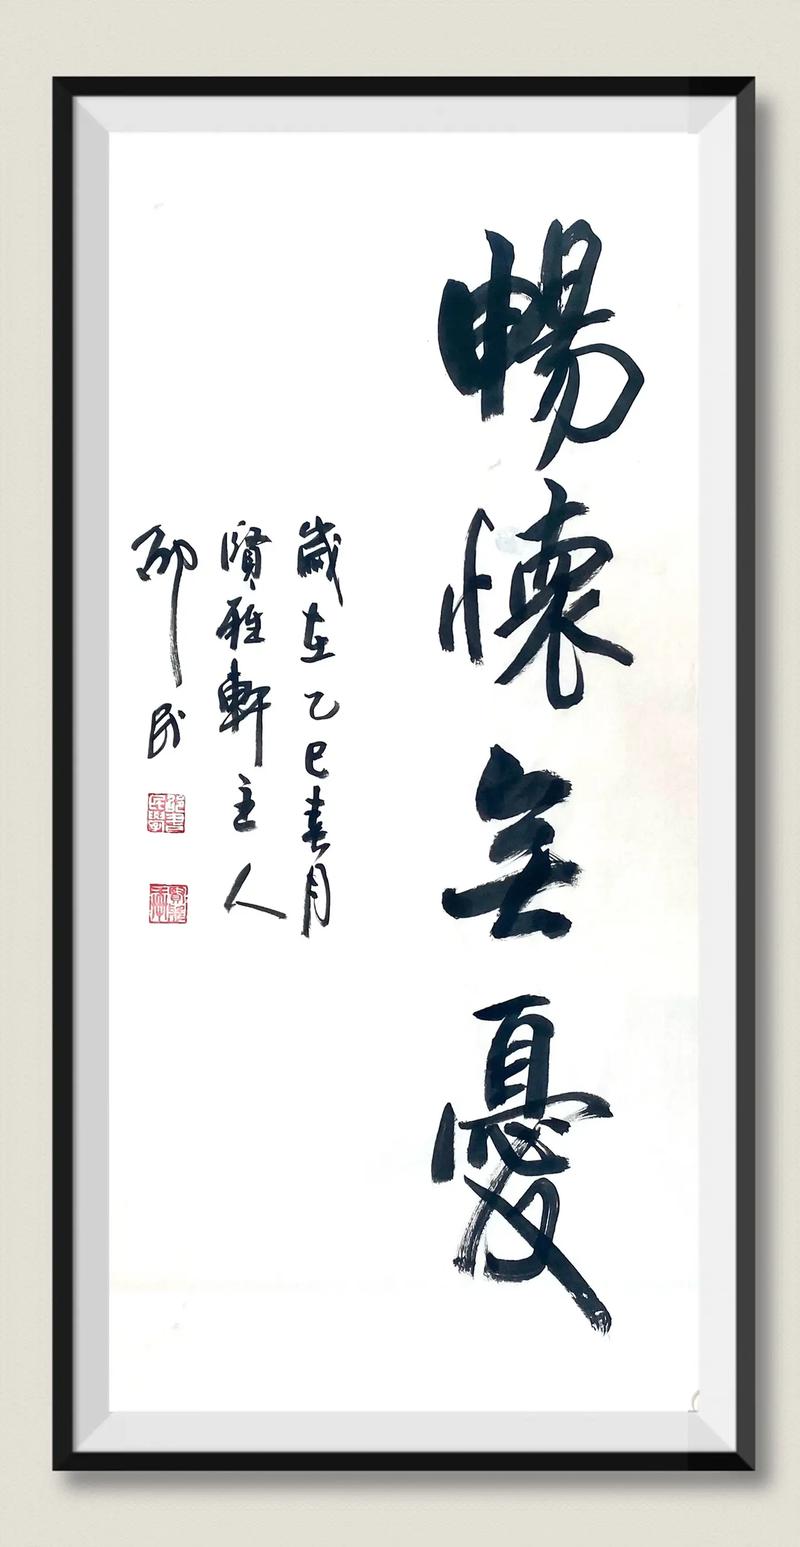 暢懷無憂
歲在乙巳春月
賢雅軒主人
邵民